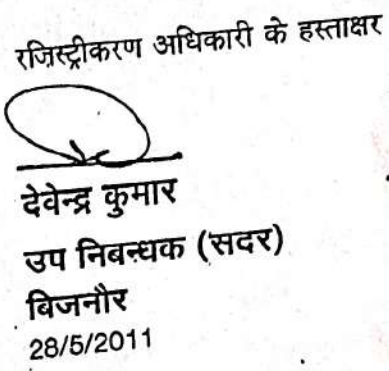 रजिस्ट्रीकरण अधिकारी के हस्ताक्षर
देवेन्द्र कुमार
उप निबन्धक (सदर)
बिजनौर
28/5/2011